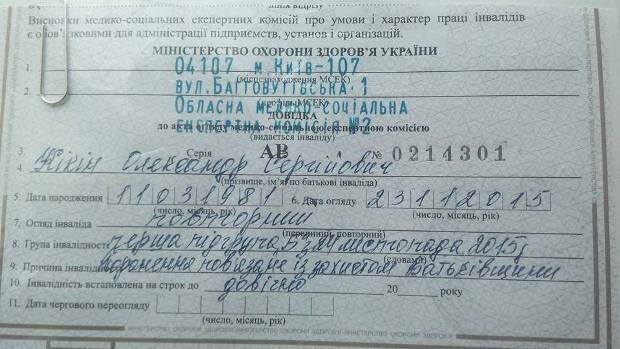 лінія відрізу
Висновки медико-соціальних експертних комісій про умови і характер праці інвалідів
є обов'язковими для адміністрації підприємств, установ і організацій.
МІНІСТЕРСТВО ОХОРОНИ ЗДОРОВ'Я УКРАЇНИ
04107 м.Київ-107
1.
(місцезнаходження МСЕК)
вул.Багговутівська 1
2.
(профіль МСЕК)
Обласна медико-соціальна
ДОВІДКА
експертна комісія №2
до акта огляду медико-соціальною експертною комісією
(видається інваліду)
3. Серія АВ № 0214301
4. Кікін Олександр Сергійович
(прізвище, ім'я, по батькові інваліда)
5. Дата народження 11031981 6. Дата огляду 23112015
(число, місяць, рік) (число, місяць, рік)
7. Огляд інваліда повторний
(первинний, повторний)
8. Група інвалідності перша підгрупа Б з 24 листопада 2015р
(словами)
9. Причина інвалідності поранення пов'язане із захистом Батьківщини
10. Інвалідність встановлена на строк до довічно 20 року
11. Дата чергового переогляду
(число, місяць, рік)